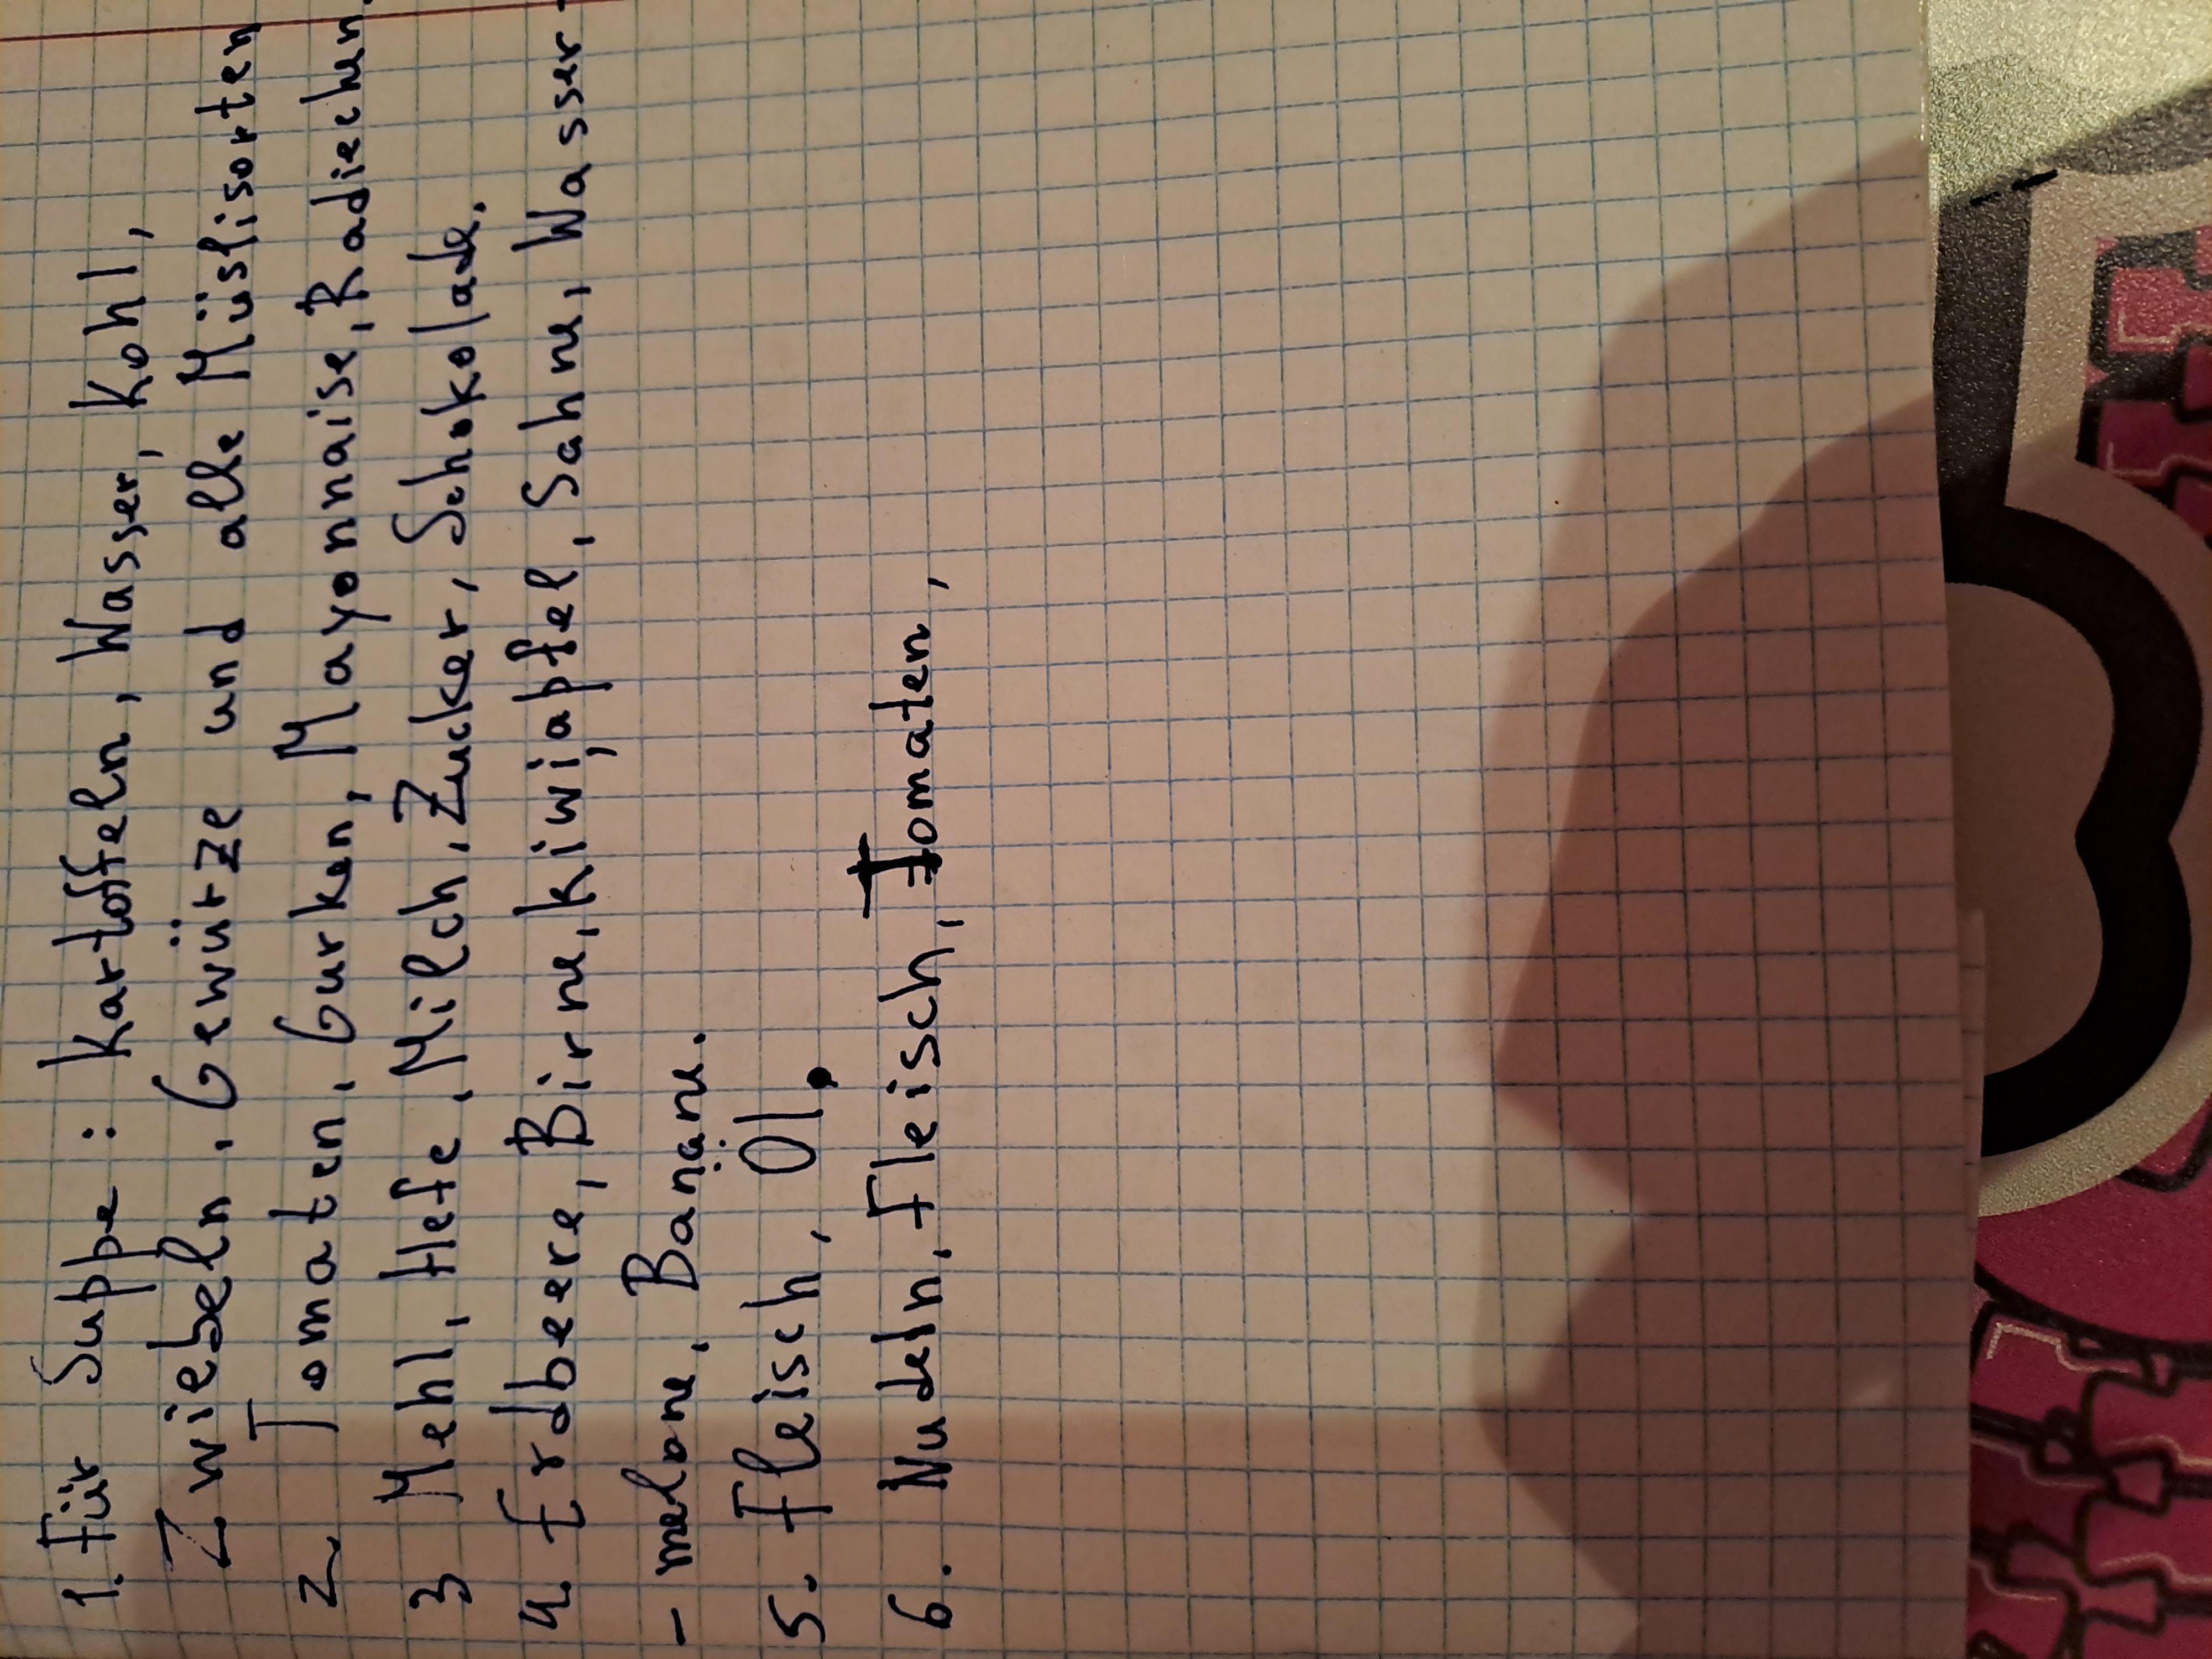 1. Für Suppe: Kartoffeln, Wasser, Kohl,
Zwiebeln, Gewürze und alle Müslisorten
2. Tomaten, Gurken, Mayonnaise, Radiechen.
3 Mehl, Hefe, Milch, Zucker, Schokolade.
4. Erdbeere, Birne, kiwi, apfel, Sahne, Wasser-
- melone, Banane.
5. Fleisch, Öl.
6. Nudeln, Fleisch, Tomaten,